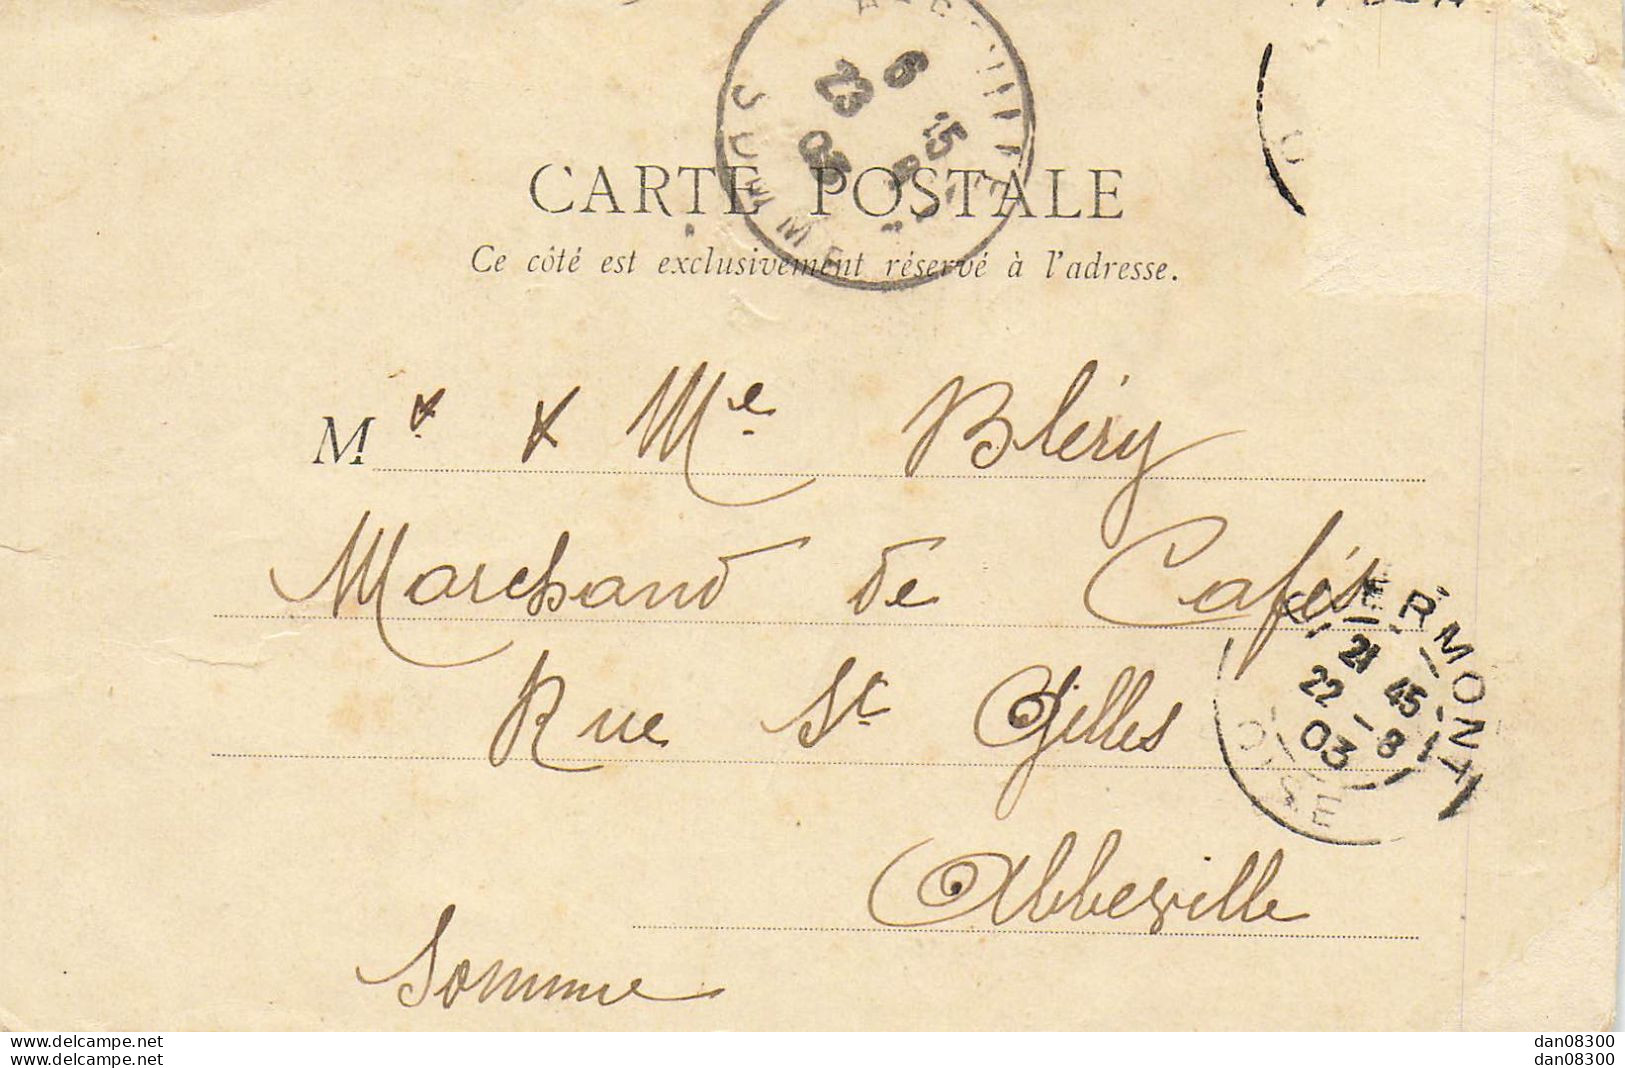 6 15
23 8
03
SOMME
CARTE POSTALE
Ce côté est exclusivement réservé à l'adresse.
Mr & Me Bléry
Marchand de Cafés
Rue St Gilles
Abbeville
Somme
CLERMONT
21 45
22 - 8
03
OISE
www.delcampe.net
www.delcampe.net
dan08300
dan08300